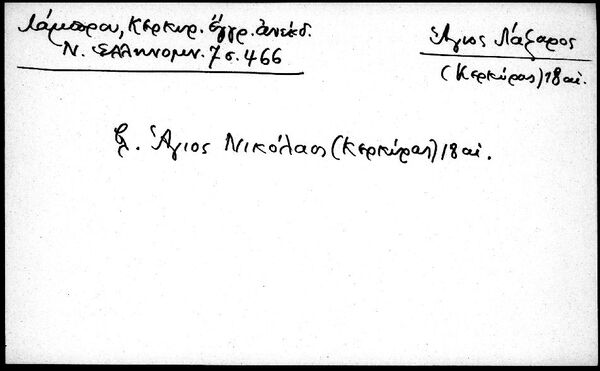 Λάμπρου, Κερκυρ. έγγρ. ανέκδ.
Ν. Ελληνομν. 7 σ. 466
Άγιος Λάζαρος
(Κερκύρας) 18 αι.
β. Άγιος Νικόλαος (Κερκύρας) 18 αι.